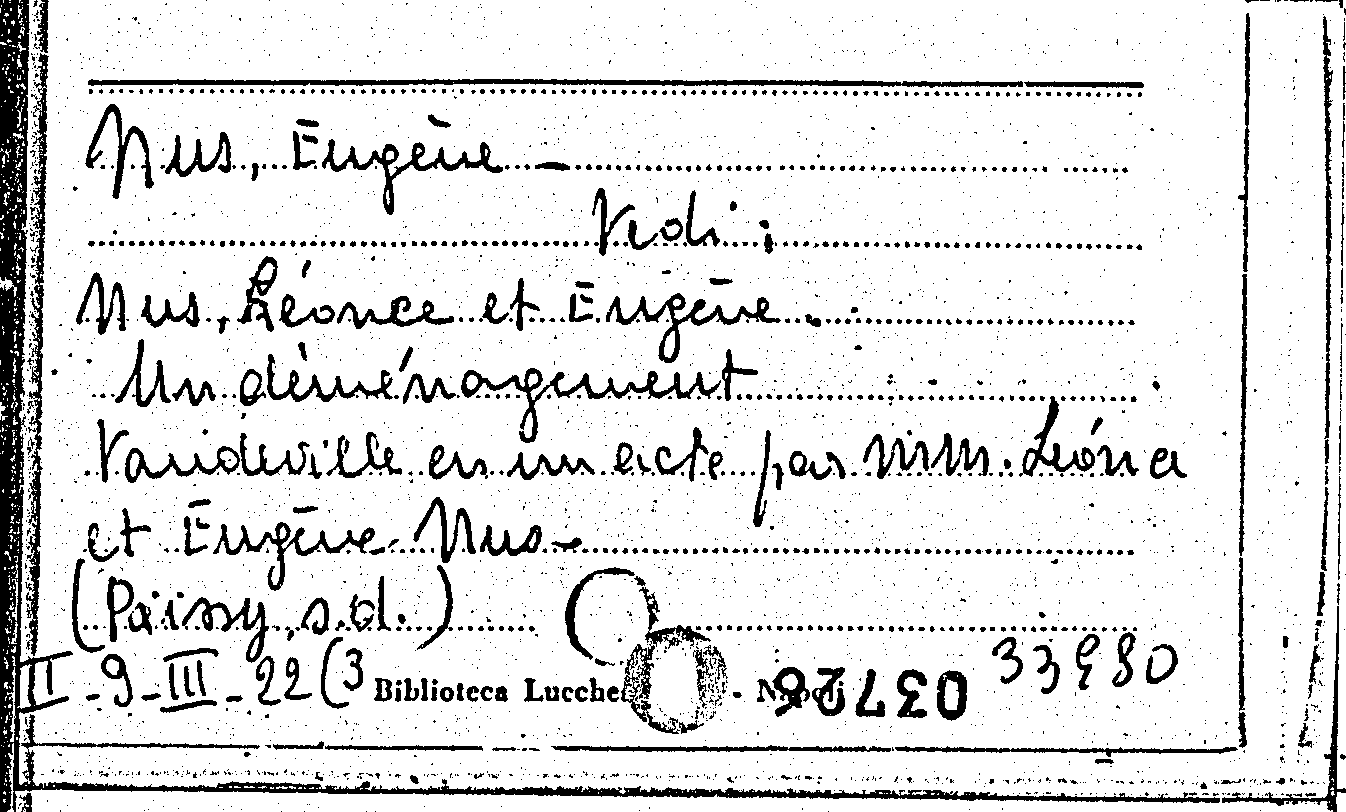 Nus, Eugène —
Vedi:
Nus, Léonce et Eugène.
Un déménagement
Vaudeville en un acte par MM. Léonce
et Eugène Nus—
(Poissy, s.d.)
II-9-III-22(3 Biblioteca Lucchesi - Napoli 33980